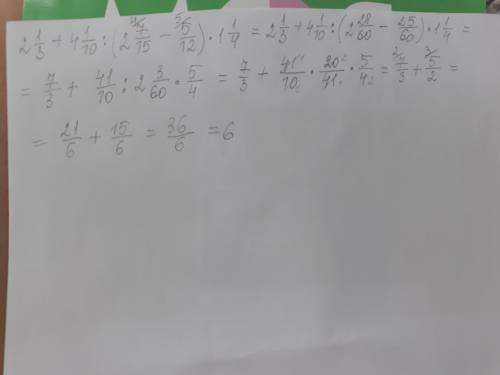 2 1/3 + 4 1/10 : (2 ⁴⁄7/15 − ⁵⁄5/12) · 1 1/4 = 2 1/3 + 4 1/10 : (2 28/60 − 25/60) · 1 1/4 =
= 7/3 + 41/10 : 2 3/60 · 5/4 = 7/3 + 41/10 · 20/41 · 5/4 = ²⁄7/3 + ³⁄5/2 =
= 21/6 + 15/6 = 36/6 = 6